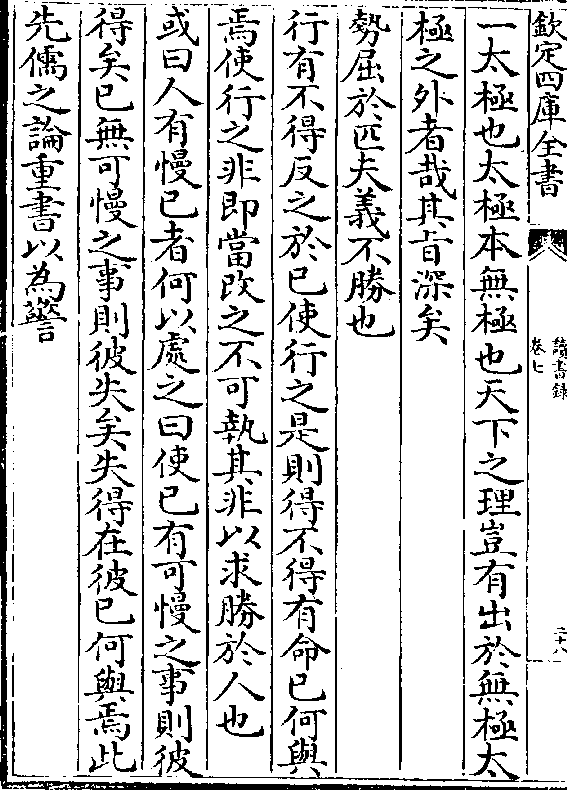 欽定四庫全書
讀書録
卷七
二十八
一太極也太極本無極也天下之理豈有出於無極太
極之外者哉其旨深矣
勢屈於匹夫義不勝也
行有不得反之於已使行之是則得不得有命已何與
焉使行之非即當改之不可執其非以求勝於人也
或曰人有慢已者何以處之曰使已有可慢之事則彼
得矣已無可慢之事則彼失矣失得在彼已何與焉此
先儒之論重書以為警